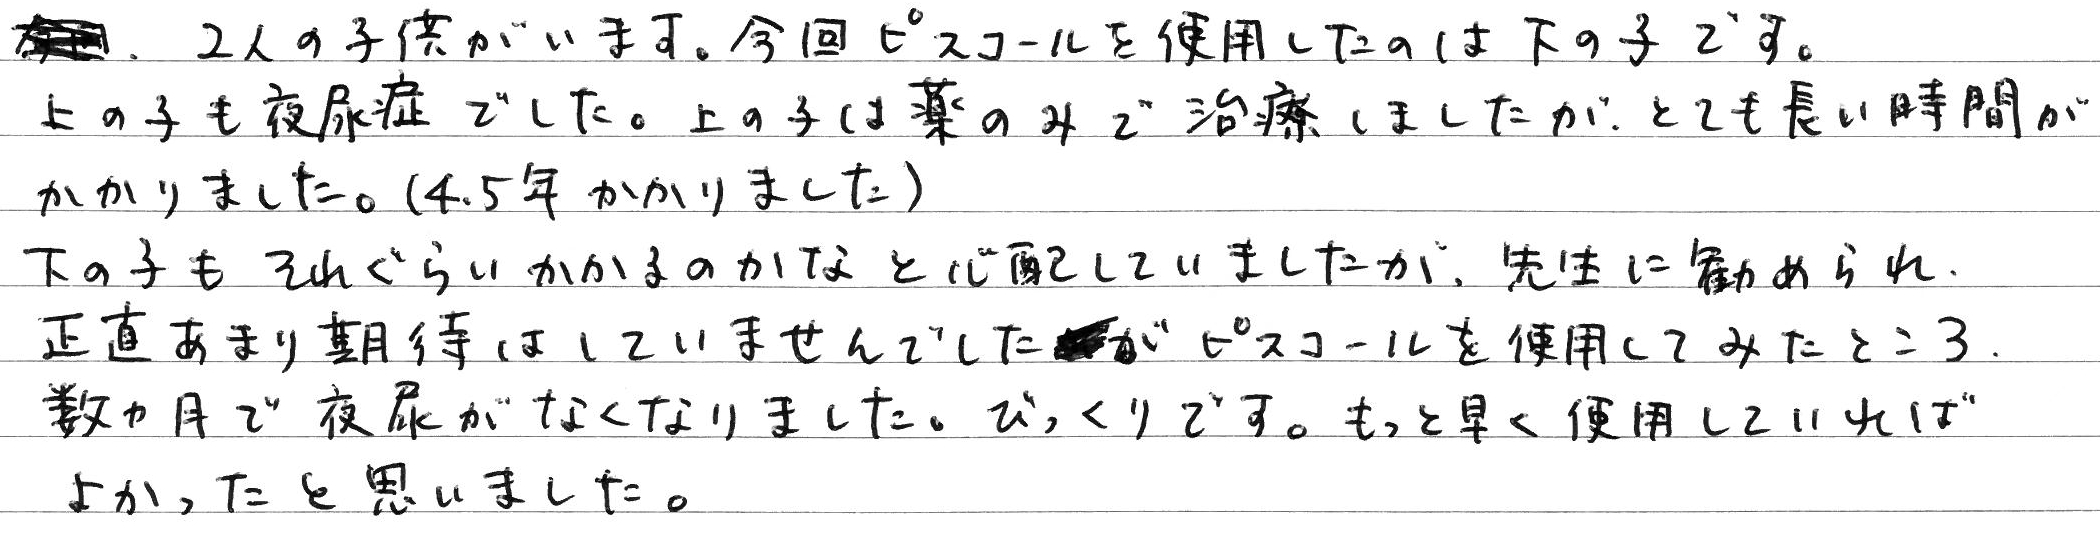 2人の子供がいます。今回ピスコールを使用したのは下の子です。
上の子も夜尿症でした。上の子は薬のみで治療しましたが、とても長い時間が
かかりました。(4.5年かかりました)
下の子もそれぐらいかかるのかなと心配していましたが、先生に勧められ、
正直あまり期待はしていませんでしたがピスコールを使用してみたところ、
数ヵ月で夜尿がなくなりました。びっくりです。もっと早く使用していれば
よかったと思いました。